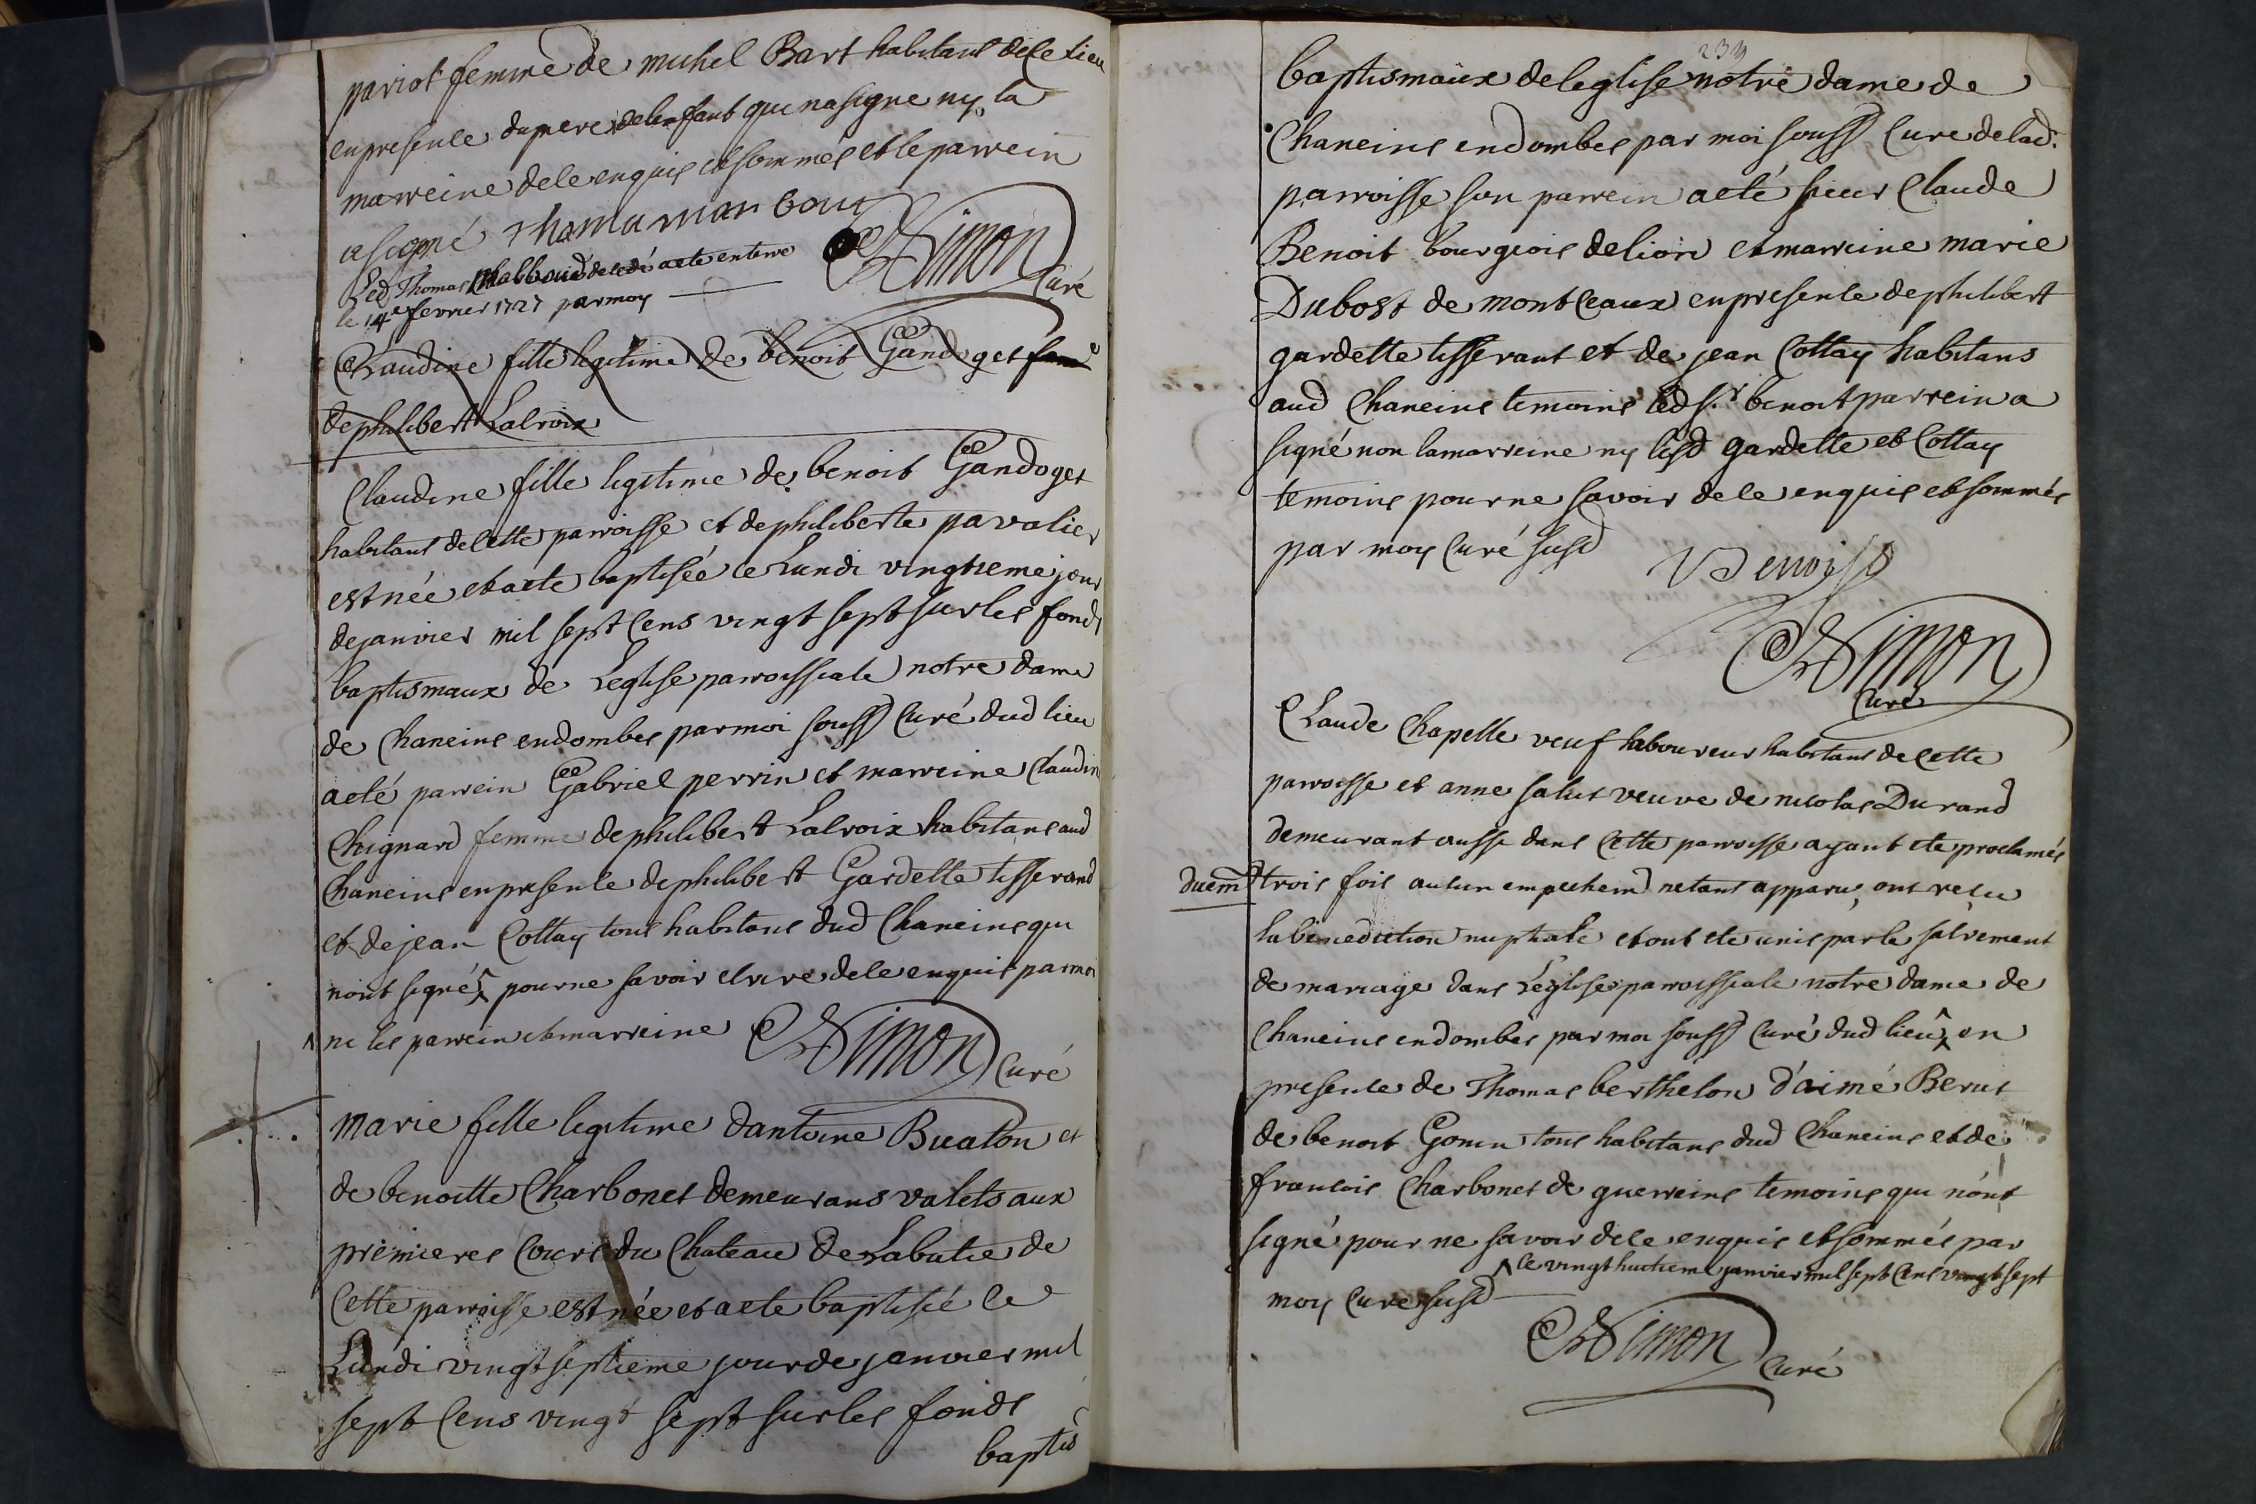 pariot femme de michel Bart habitant de ce lieu
en presence du pere de lenfant qui na signe ny la
marreine de ce enquis et sommés et le parrein
a signé Thoma marbout
CSimon Curé
Led Thomas decedé a ete enterré
le 14e fevrier 1727 par moy
Claudine fille legitime de benoit Gandoget
de philibert Lacroix
Claudine fille legitime de benoit Gandoget
habitant de cette parroisse et de philiberte pavalier
est née et a ete baptisée le Lundi vingtieme jour
de janvier mil sept cens vingt sept sur les fonds
baptismaux de Leglise parroissiale notre dame
de Chaneins en dombes par moi souss curé dud lieu
a eté parrein Gabriel perrin et marreine Claudine
Chignard femme de philibert Lacroix habitans aud
Chaneins en presence de philibert Gardette tisserand
et de jean Cottay tous habitans dud Chaneins qui
nont signé ^ pour ne savoir ecrire de ce enquis par moi
^ ni les parrein et marreine CSimon Curé
Marie fille legitime dantoine Buaton et
de benoitte Charbonet demeurans valets aux
premieres Cours du Chateau de Labatie de
Cette parroisse est née et a ete baptisée le
Lundi vingt septieme jour de janvier mil
sept cens vingt sept sur les fonds
baptis
234
baptismaux de leglise notre dame de
Chaneins en dombes par moi souss Curé de lad.
parroisse son parrein a eté sieur Claude
Benoit bourgeois de lion et marreine marie
Dubost de montceaux en presence de philibert
gardette tisserant et de jean Cottay habitans
aud Chaneins temoins led sr benoit parrein a
signé non la marreine ny lesd gardette et Cottay
temoins pour ne savoir de ce enquis et sommés
par moy curé susd
Benoist
CSimon
Curé
Claude Chapelle veuf laboureur habitant de Cette
parroisse et anne salut veuve de nicolas Durand
demeurant aussi dans Cette parroisse ayant ete proclamés
duem^t trois fois aucun empechemt netant apparu, ont reçu
la benediction nuptiale et ont ete unis par le sacrement
de mariage dans Léglise parroissiale notre dame de
Chaneins en dombes par moi souss Curé dud lieu ^ en
presence de Thomas berthelon d'aimé Berut
de benoit Gonin tous habitans dud Chaneins et de
francois Charbonet de guerreins temoins qui n'ont
signé pour ne savoir de ce enquis et sommés par
^ le vingt huitieme janvier mil sept cens vingt sept
moy Curé susd
CSimon Curé